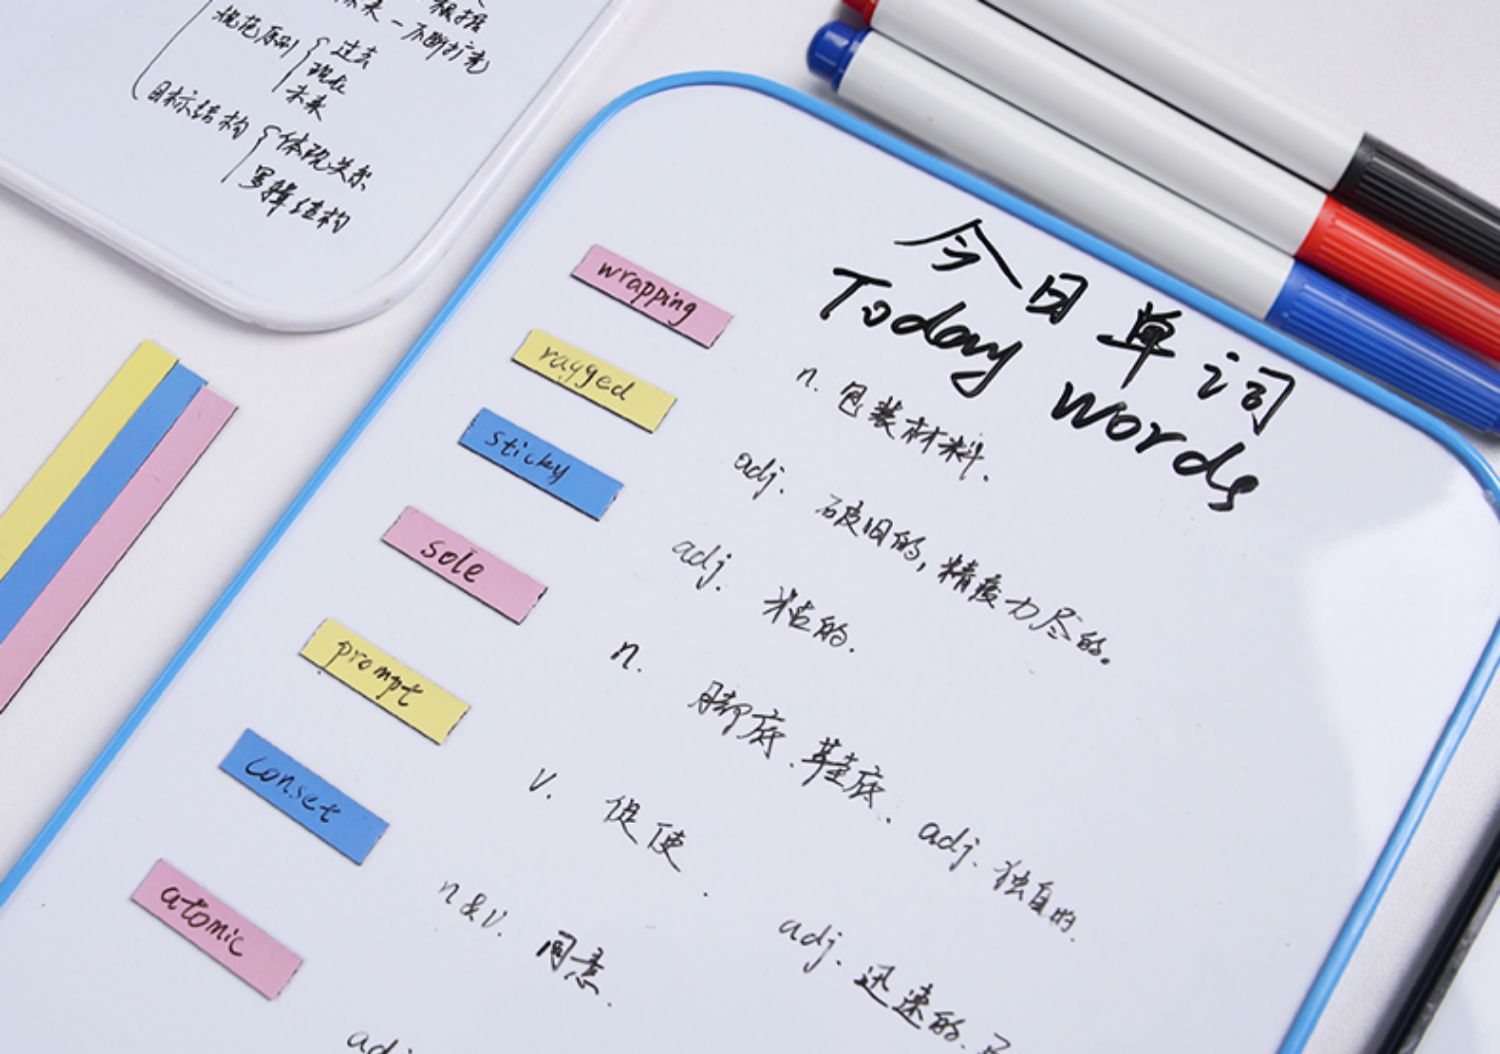 未来－不断扩充
规范原则 { 过去
现在
未来
目标结构 { 体现关系
写择结构
今日单词
Today words
wrapping n. 包装材料.
ragged adj. 破旧的, 精疲力尽的.
sticky adj. 粘的.
sole n. 脚底、鞋底. adj. 独自的.
prompt v. 促使. adj. 迅速的.
conset n&v. 同意.
atomic adj